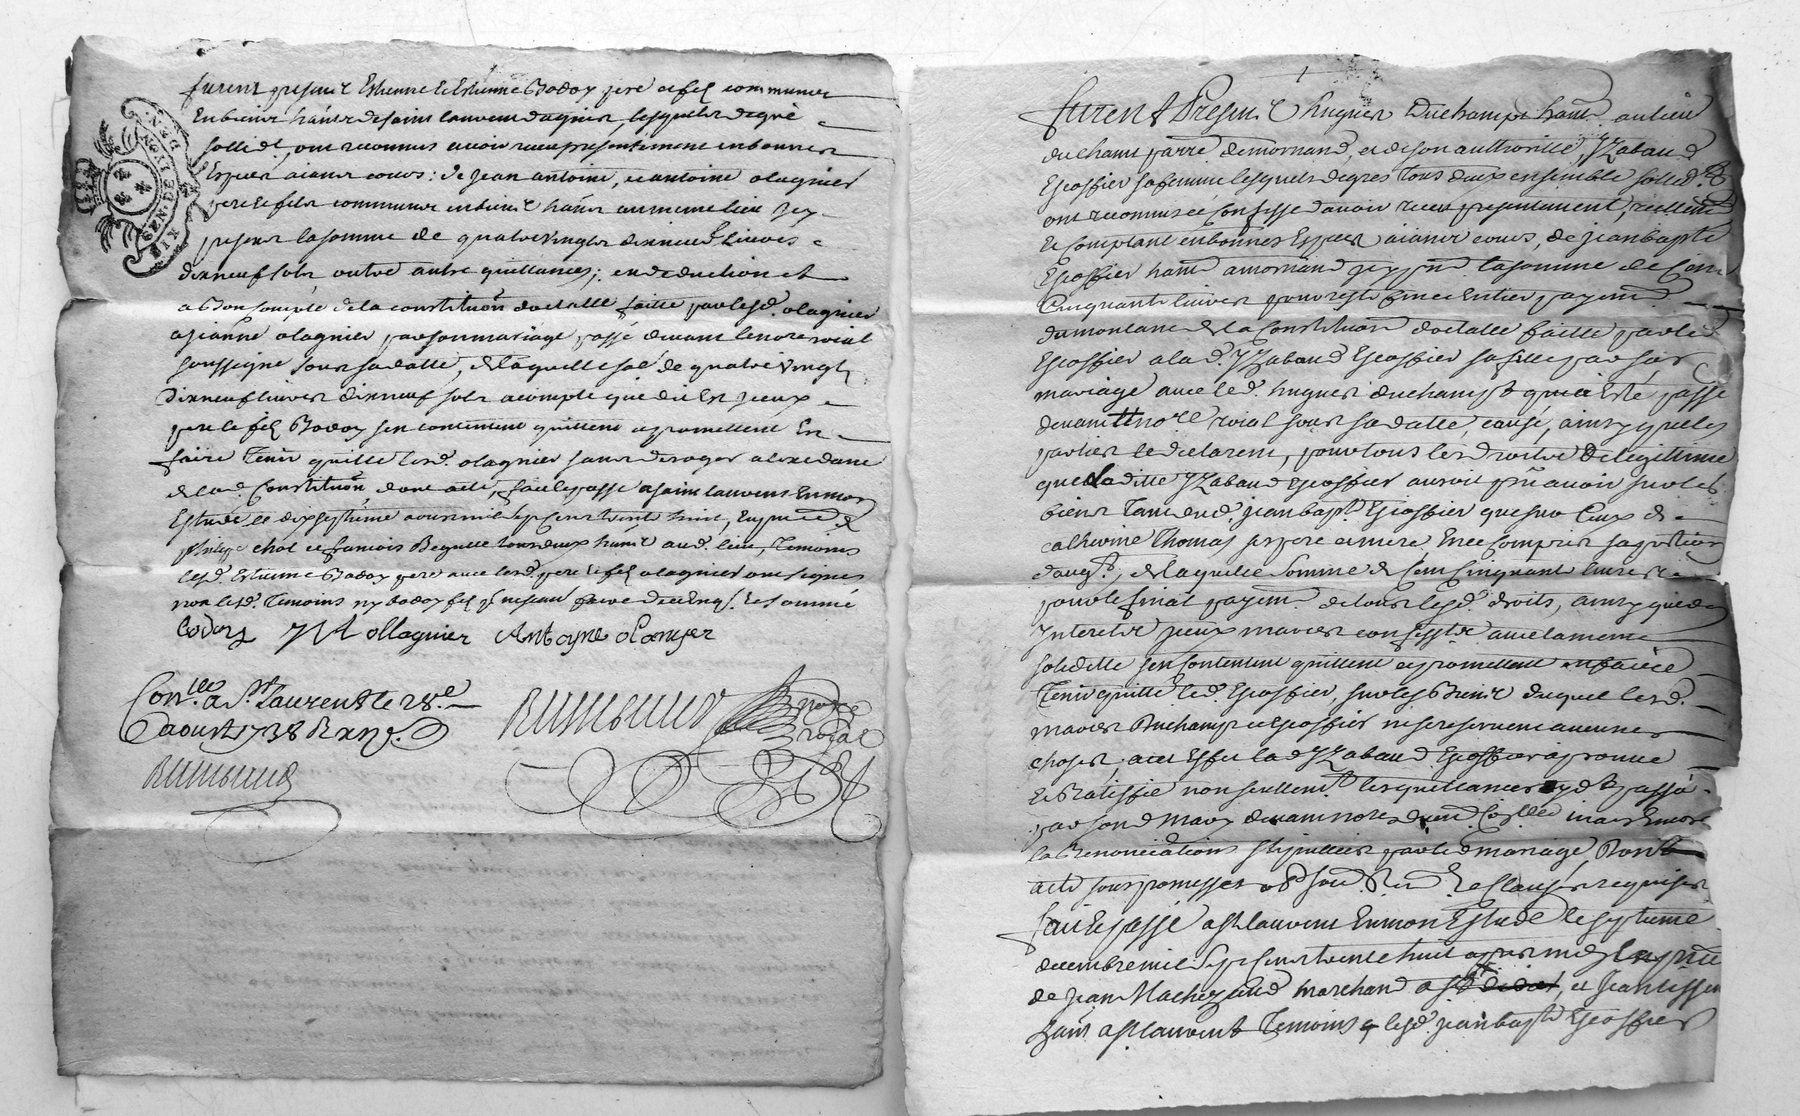 GEN. DE LYON
SIX DEN.
furent presens Estienne et Estienne Bodoy pere et fils communs
en biens hans de saint laurens dagnis, lesquels de gré
sollidt, ont reconnus avoir receu presentement en bonnes
Especes aians cours: de jean antoine, et antoine olagnier
pere et fils communs en biens hans au meme lieu jcy
presens la somme de quatrevingts dixneuf livres
dixneuf sols outre autre quittances; en deduction et
a Bon compte de la constitution dotalle faitte par lesd. olagnier
a jeanne olagnier par son mariage passé devant le nore roial
soussigné sous sa datte, de laquelle soe de quatrevingts
dixneuf livres dixneuf sols acompte que dit Est jceux
pere et fils Bodoy sen contentent quittent et promettent En
faire Tenir quitte lesd. olagnier sans deroger
de lad. Constitution, dont acte, fait et passé a saint laurens En mon
Estude le dixseptieme aoust mil sept cens trente huit, En prnce de
philippe chol et francois tous deux hans aud. lieu, Temoins
lesd. Estienne Bodoy pere avec lesd. pere et fils olagnier ont signés
non lesd. Temoins ny bodoy fils pr ne scavoir faire de ce Enqs. et sommé
bodoy J A ollagnier Antoyne olanier
Conlle. a St. Laurens le 28e.
aoust 1738 R
notre
roial
furent Presens hugues Duchamp hant au lieu
du champ parre de mornand, et de son authoritté, Yzabaud
Escoffier sa femme lesquels de gres Tous deux ensemble sollidt.
ont reconnus et Confessé d'avoir receu presentement, reellemt
et comptant en bonnes Especes aians cours, de jean bapte
Escoffier hant a mornand jcy pnt la somme de Cent
Cinquante livres pour reste fin et Entier payemt
du montant de la Constitution dotalle faitte par led.
Escoffier a lad. Yzabaud Escoffier sa fille par son
mariage avec led. hugues duchamp qui a Esté passé
devant nore roial sous sa datte, causé, ainsy que les
parties le declarent, pour tous les droits de legitime
que laditte Yzabaud Escoffier auroit pu avoir sur les
biens Tant dud. jean bapt. Escoffier que sur Ceux de
catherine Thomas ses pere et mere En ce Compris sa portion
d'augt., de laquelle Somme de Cent Cinquante livres
pour le final payemt. de tous lesd. droits, ainsy que des
jnterets jceux maries confesses avec la meme
sollidité sen Contentent quittent et promettent en faire
Tenir quitte led. Escoffier, sur les Biens duquel lesd.
maries Duchamp et Escoffier ne se reservent aucunes
choses, a cet Effet lad. Yzabaud Escoffier aprouve
et Ratiffie non seullemt. les quittances passé
par sond mary devant nores mais Encore
la Renonciation stipullée par led mariage, Dont
acte sous promesses obon soumon Ren et clauses requises
fait et passé a st laurens En mon Estude le septieme
decembre mil sept Cens trente huit apres midy En prnce
de jean Machezaud marchand a st didier, et jean
hans a st laurens Temoins q lesd. jean bapte Escoffier